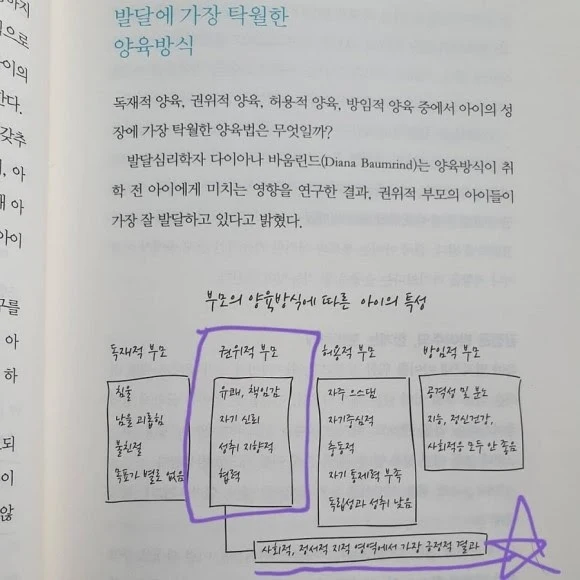 발달에 가장 탁월한
양육방식
독재적 양육, 권위적 양육, 허용적 양육, 방임적 양육 중에서 아이의 성
장에 가장 탁월한 양육법은 무엇일까?
발달심리학자 다이아나 바움린드(Diana Baumrind)는 양육방식이 취
학 전 아이에게 미치는 영향을 연구한 결과, 권위적 부모의 아이들이
가장 잘 발달하고 있다고 밝혔다.
부모의 양육방식에 따른 아이의 특성
독재적 부모
침울
남을 괴롭힘
불친절
목표가 별로 없음
권위적 부모
유쾌, 책임감
자기 신뢰
성취 지향적
협력
허용적 부모
자주 으스댐
자기중심적
충동적
자기 통제력 부족
독립성과 성취 낮음
방임적 부모
공격성 및 분노
지능, 정신건강,
사회적응 모두 안 좋음
사회적, 정서적 지적 영역에서 가장 긍정적 결과